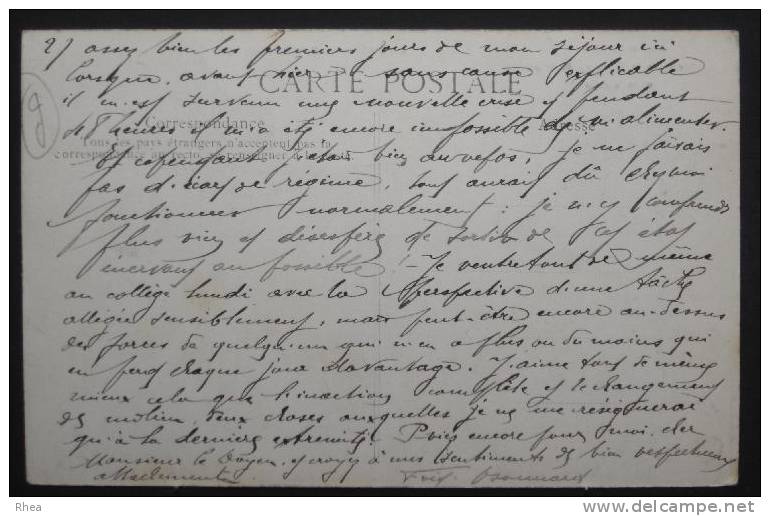 2) assez bien les premiers jours de mon séjour ici
lorsque, avant hier, sans cause explicable
CARTE POSTALE
il m'est survenu une nouvelle crise et pendant
Correspondance
Adresse
48 heures il m'a été encore impossible de m'alimenter.
Tous les pays étrangers n'acceptent pas la
correspondance au recto. Se renseigner à la Poste
Et cependant j'étais bien au repos, je ne faisais
pas d'écart de régime, tout aurait dû chez moi
fonctionner normalement : je n'y comprends
plus rien et désespère de sortir de cet état
énervant au possible ! - Je rentre tout de même
au collège lundi avec la perspective d'une tâche
allégée sensiblement, mais peut-être encore au-dessus
des forces de quelqu'un qui n'en a plus ou du moins qui
en perd chaque jour davantage. J'aime tout de même
mieux cela que l'inaction complète et le changement
de milieu, deux choses auxquelles je ne me résignerai
qu'à la dernière extrémité. Priez encore pour moi, cher
Monsieur le Doyen, et croyez à mes sentiments de bien respectueux
attachements.
g
Rhea
delcampe.net